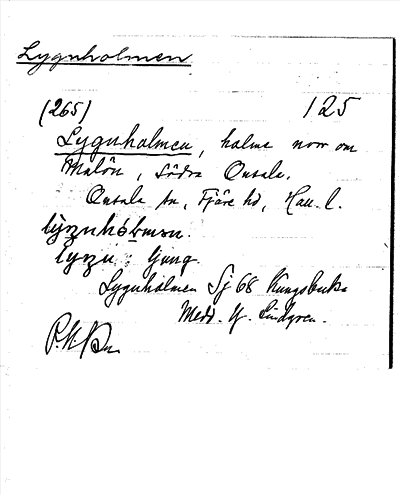 Lygnholmen
(265) 125
Lygnholmen, holme norr om
Malön, Södra Onsala.
Onsala sn, Fjäre hd, Hall. l.
Lygnholmen Sj 68 Kungsbacka
Medd. G. Lindgren.